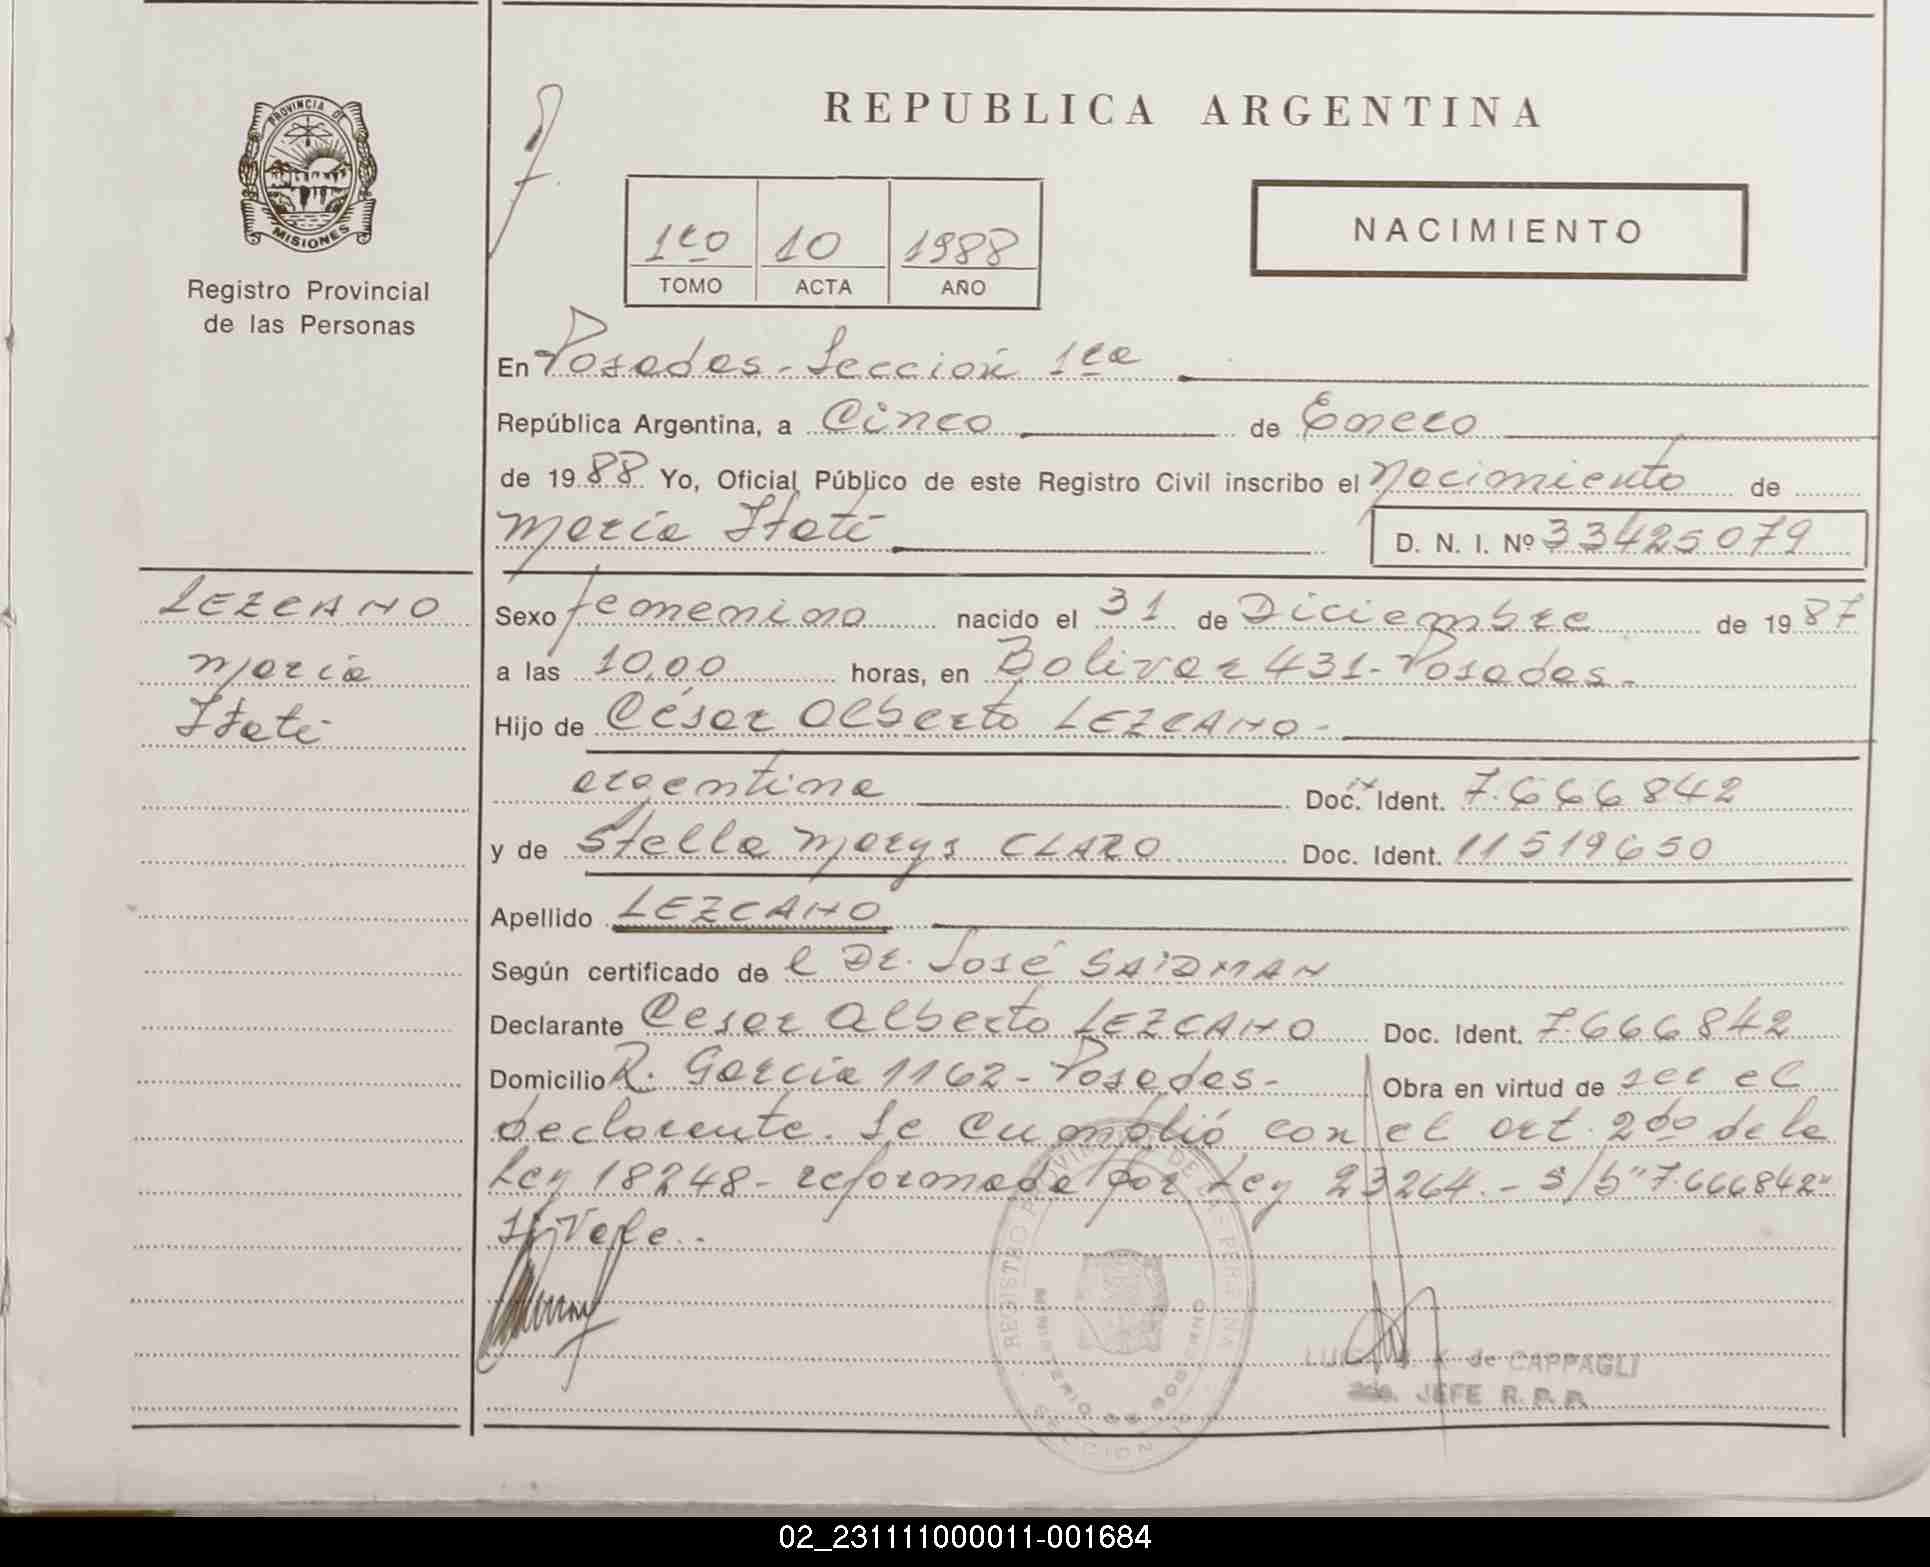 REPUBLICA ARGENTINA
PROVINCIA DE
MISIONES
Registro Provincial
de las Personas
1ro 10 1988
TOMO ACTA AÑO
NACIMIENTO
En Posadas - Sección 1ra
República Argentina, a Cinco de Enero
de 1988 Yo, Oficial Público de este Registro Civil inscribo el Nacimiento de
María Itatí
D. N. I. Nº 33425079
LEZCANO
María
Itatí
Sexo femenino nacido el 31 de Diciembre de 1987
a las 10,00 horas, en Bolivar 431 - Posadas -
Hijo de César Alberto LEZCANO -
argentina Doc. Ident. 7.666842
y de Stella Marys CLARO Doc. Ident. 11519650
Apellido LEZCANO
Según certificado de l Dr. José SAIDMAN
Declarante Cesar Alberto LEZCANO Doc. Ident. 7.666842
Domicilio R. García 1162 - Posadas - Obra en virtud de ser el
declarante. Se Cumplió con el art. 2do de la
Ley 18248 - reformada por Ley 23264. - s/b "7.666842"
Si Vale..
REGISTRO PROVINCIAL DE
MINISTERIO DE GOBIERNO
de CAPPAGLI
2do. JEFE R.P.P.
02_231111000011-001684